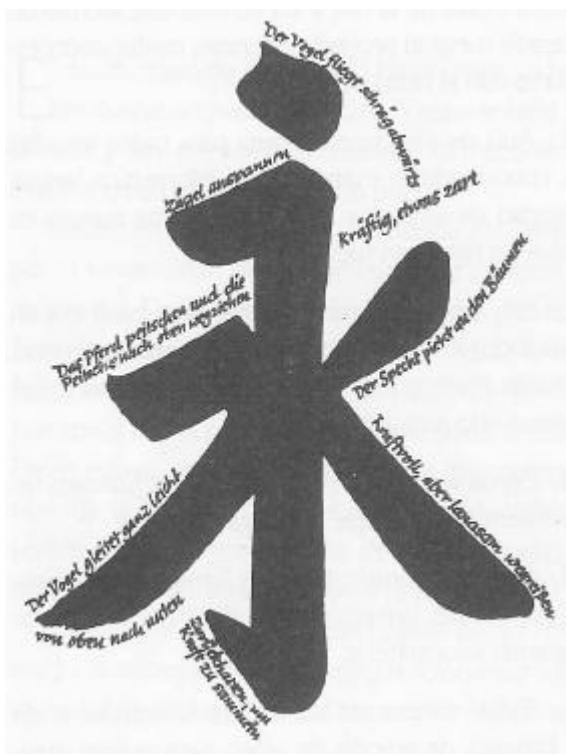 永
Der Vogel fliegt schräg abwärts
Zügel anspannen
Kräftig, etwas zart
Das Pferd peitschen und die
Peitsche nach oben wegziehen
Der Specht pickt an den Bäumen
Kraftvoll, aber langsam wegreißen
Der Vogel gleitet ganz leicht
von oben nach unten
Zurückhalten, um
Kraft zu sammeln